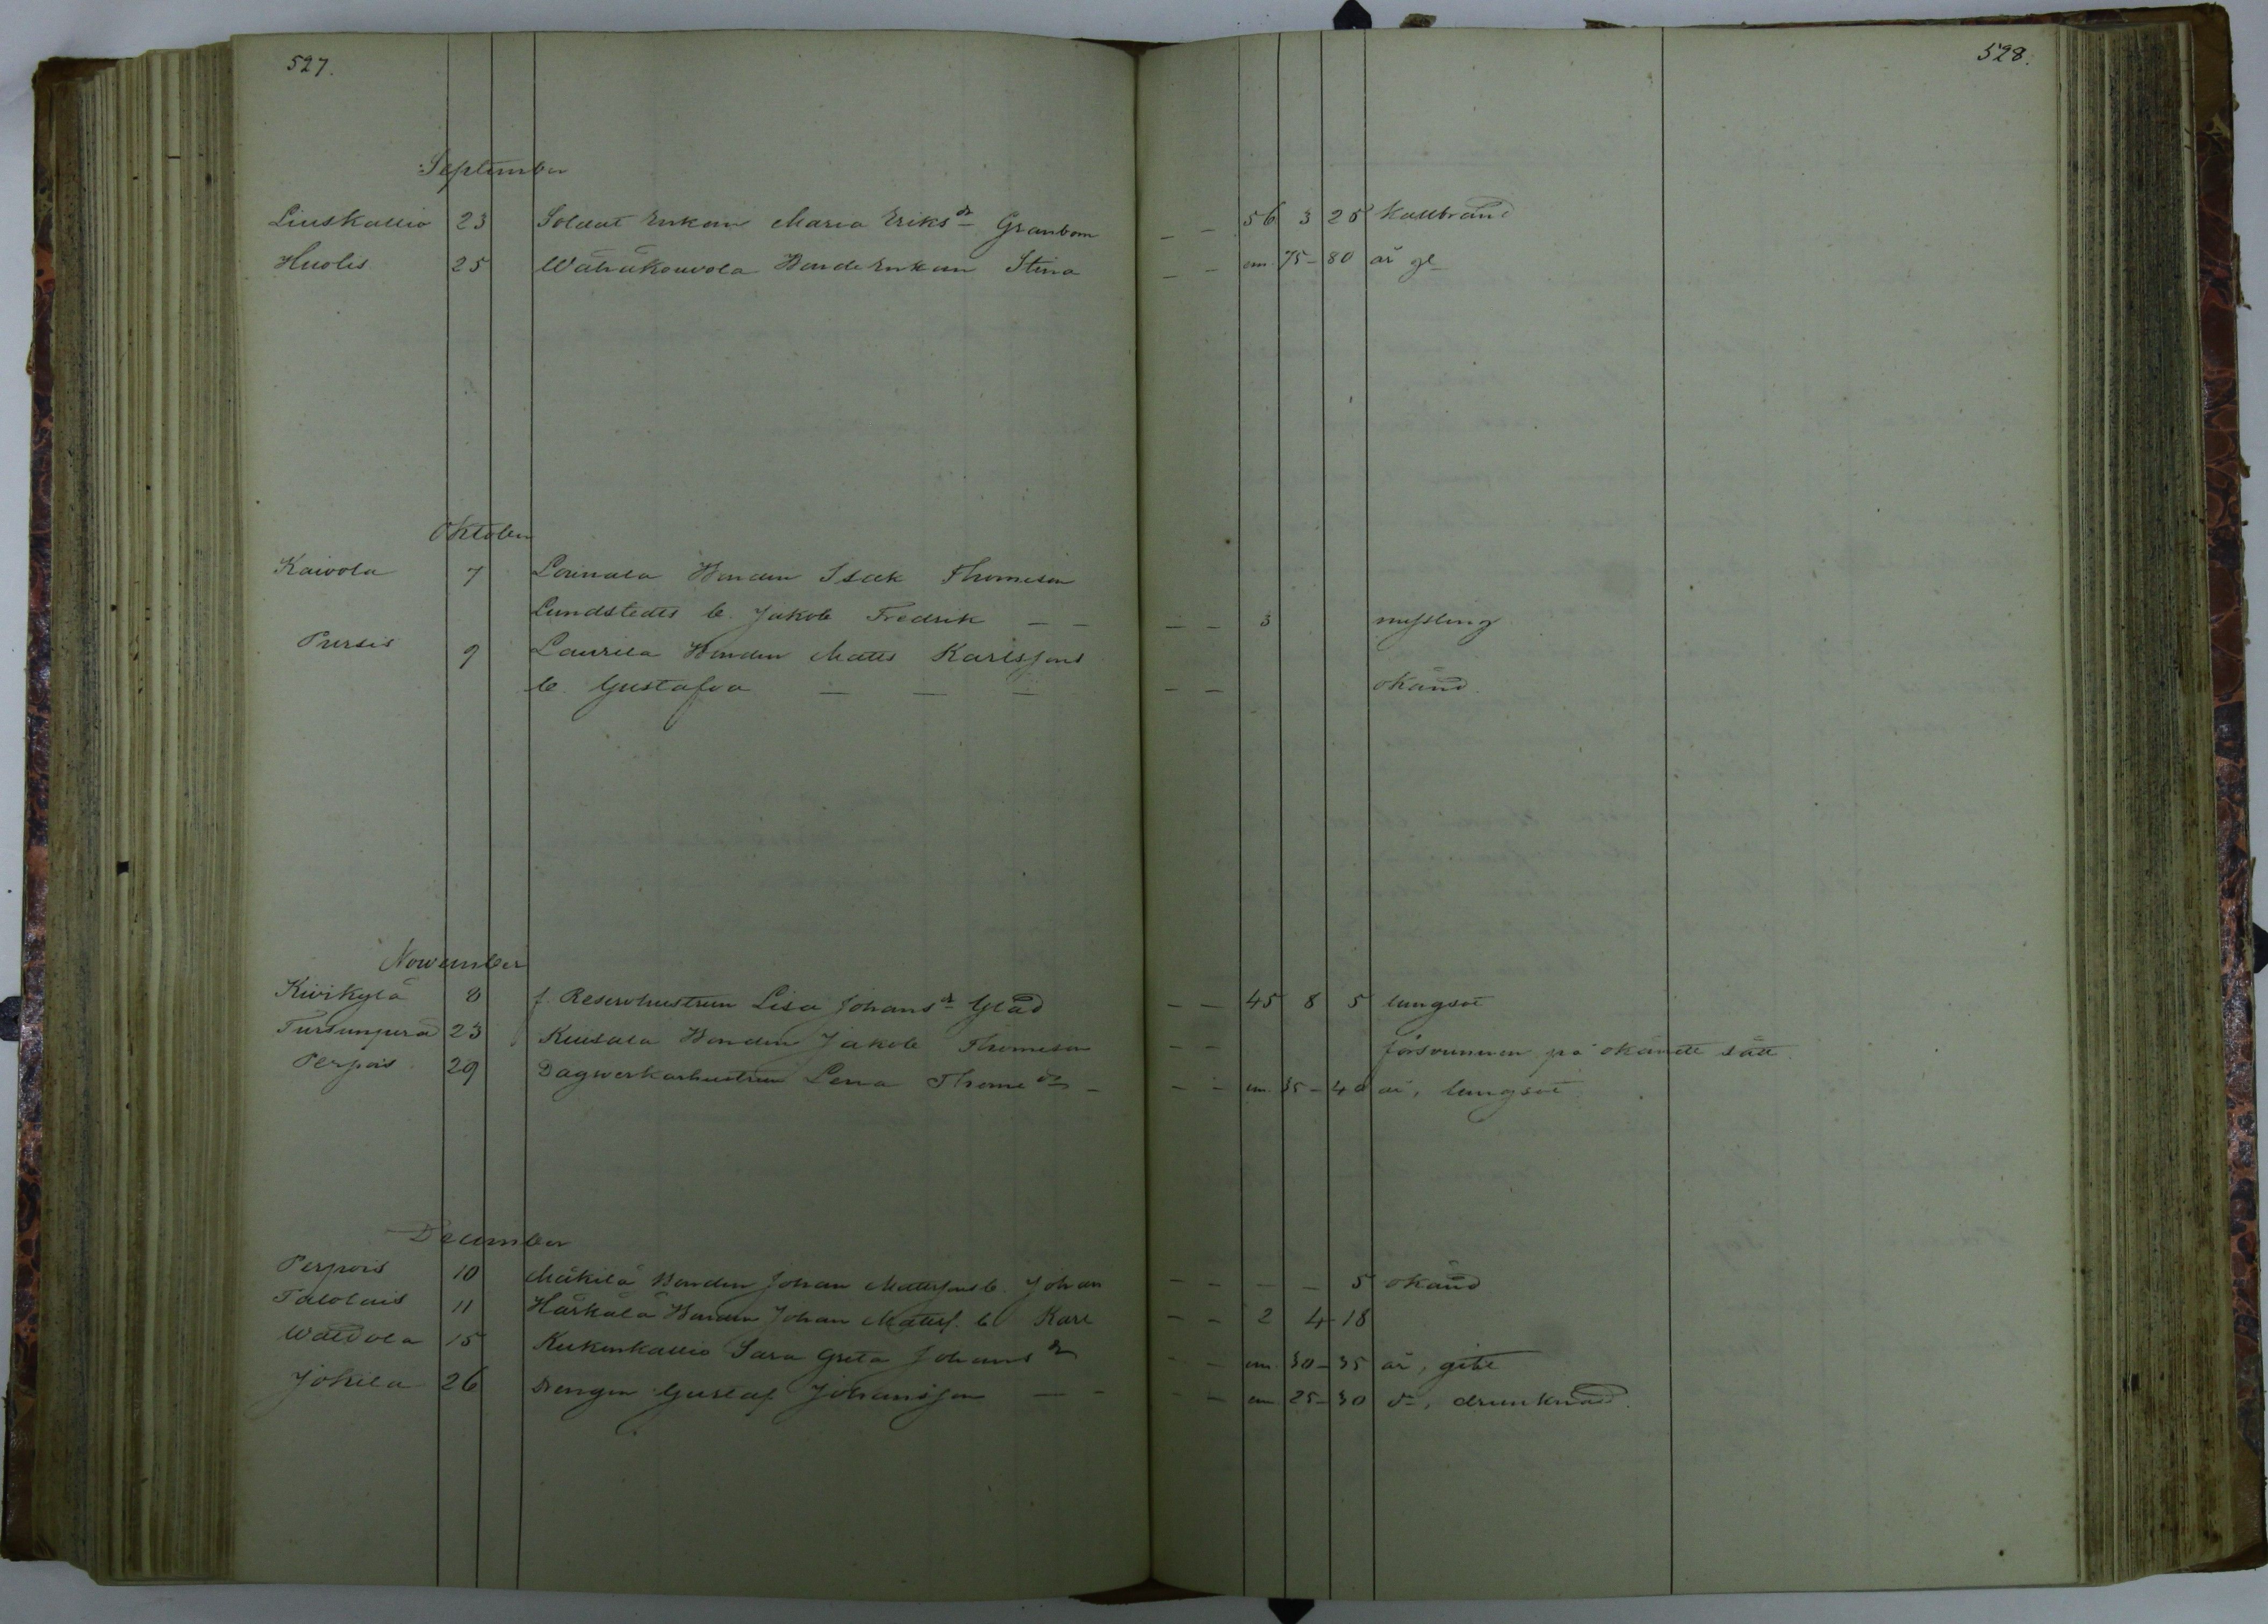 527.
528.
September
Liuskallio 23 Soldat Enkan Maria Eriksdr Granbom — — 56 3 25 kallbrand
Huolis 25 Wähäkouvola Bonde Enkan Stina — — em. 75-80 år gl
Oktober
Kaivola 7 Bonden Isak Thomeson
Lundstedts b. Jakob Fredrik — — — — 3 messling
Pursis 9 Laurila Bonden Matts Karlssons
b. Gustafva — — — — — okänd.
November
Kivikylä 8 f. Reservhustrun Lisa Johansdr Glad — — 45 8 5 lungsot
Tursunperä 23 Bonden Jakob Thomeson — — försvunnen på okändt sätt.
Perpois 29 Dagwerkarhustrun Lena Thomedr — — — em. 35-40 år, lungsot
December
Perpois 10 Mäkilä Bonden Johan Mattssons b. Johan — — — — 5 okänd
Talolais 11 Härkälä Bonden Johan Matts. b. Karl — — 2 4 18
15 Kukonkallio Sara Greta Johansdr — — em. 30-35 år, gikt
Jokila 26 Drengen Gustaf Johansson — — — — em. 25-30 do, drunknad.